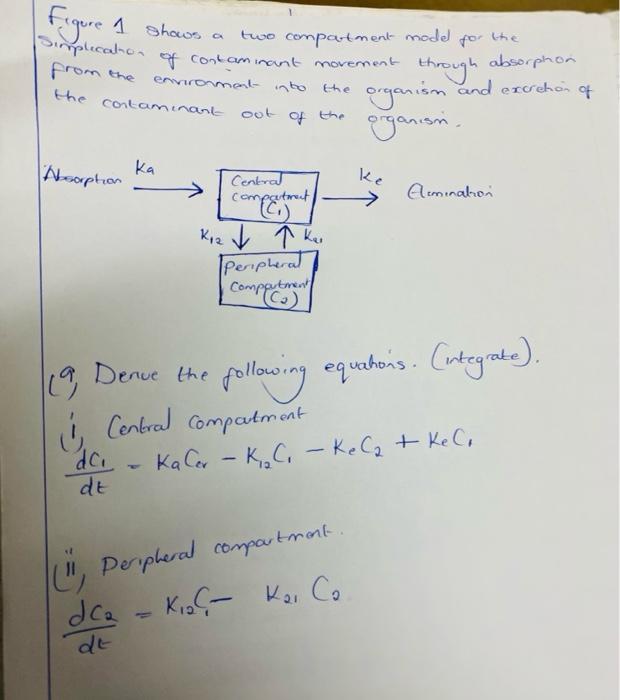 Figure 1 shows a two compartment model for the
Simplication of contaminant movement through absorption
from the environment into the organism and excretion of
the contaminant out of the organism.
Absorption Ka Central compartment (C₁) Ke Elimination
K₁₂ K₂₁
Peripheral compartment (C₂)
(a, Derive the following equations. (integrate).
(i, Central compartment
dC₁/dt = KaCev - K₁₂C₁ - KeC₂ + KeC₁
(ii, Peripheral compartment.
dC₂/dt = K₁₂C₁ - K₂₁ C₂